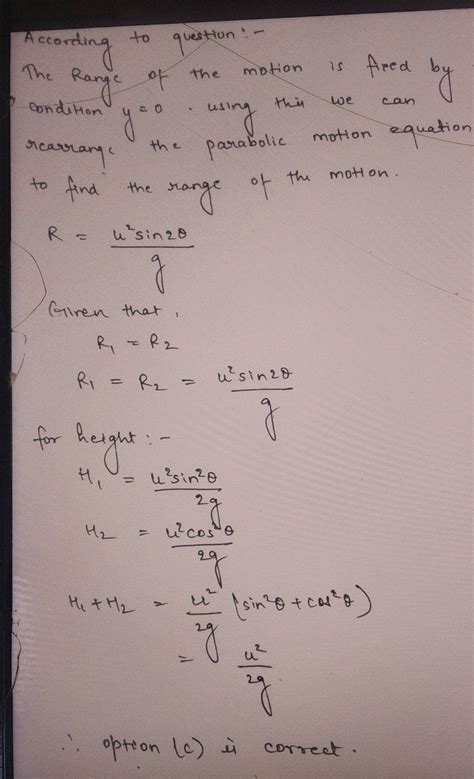 According to question :-
The Range of the motion is fixed by
condition y=0 . using this we can
rearrange the parabolic motion equation
to find the range of the motion.
R = u²sin2θ / g
Given that,
R₁ = R₂
R₁ = R₂ = u²sin2θ / g
for height :-
H₁ = u²sin²θ / 2g
H₂ = u²cos²θ / 2g
H₁+H₂ = u² / 2g (sin²θ + cos²θ)
= u² / 2g
∴ option (c) is correct.